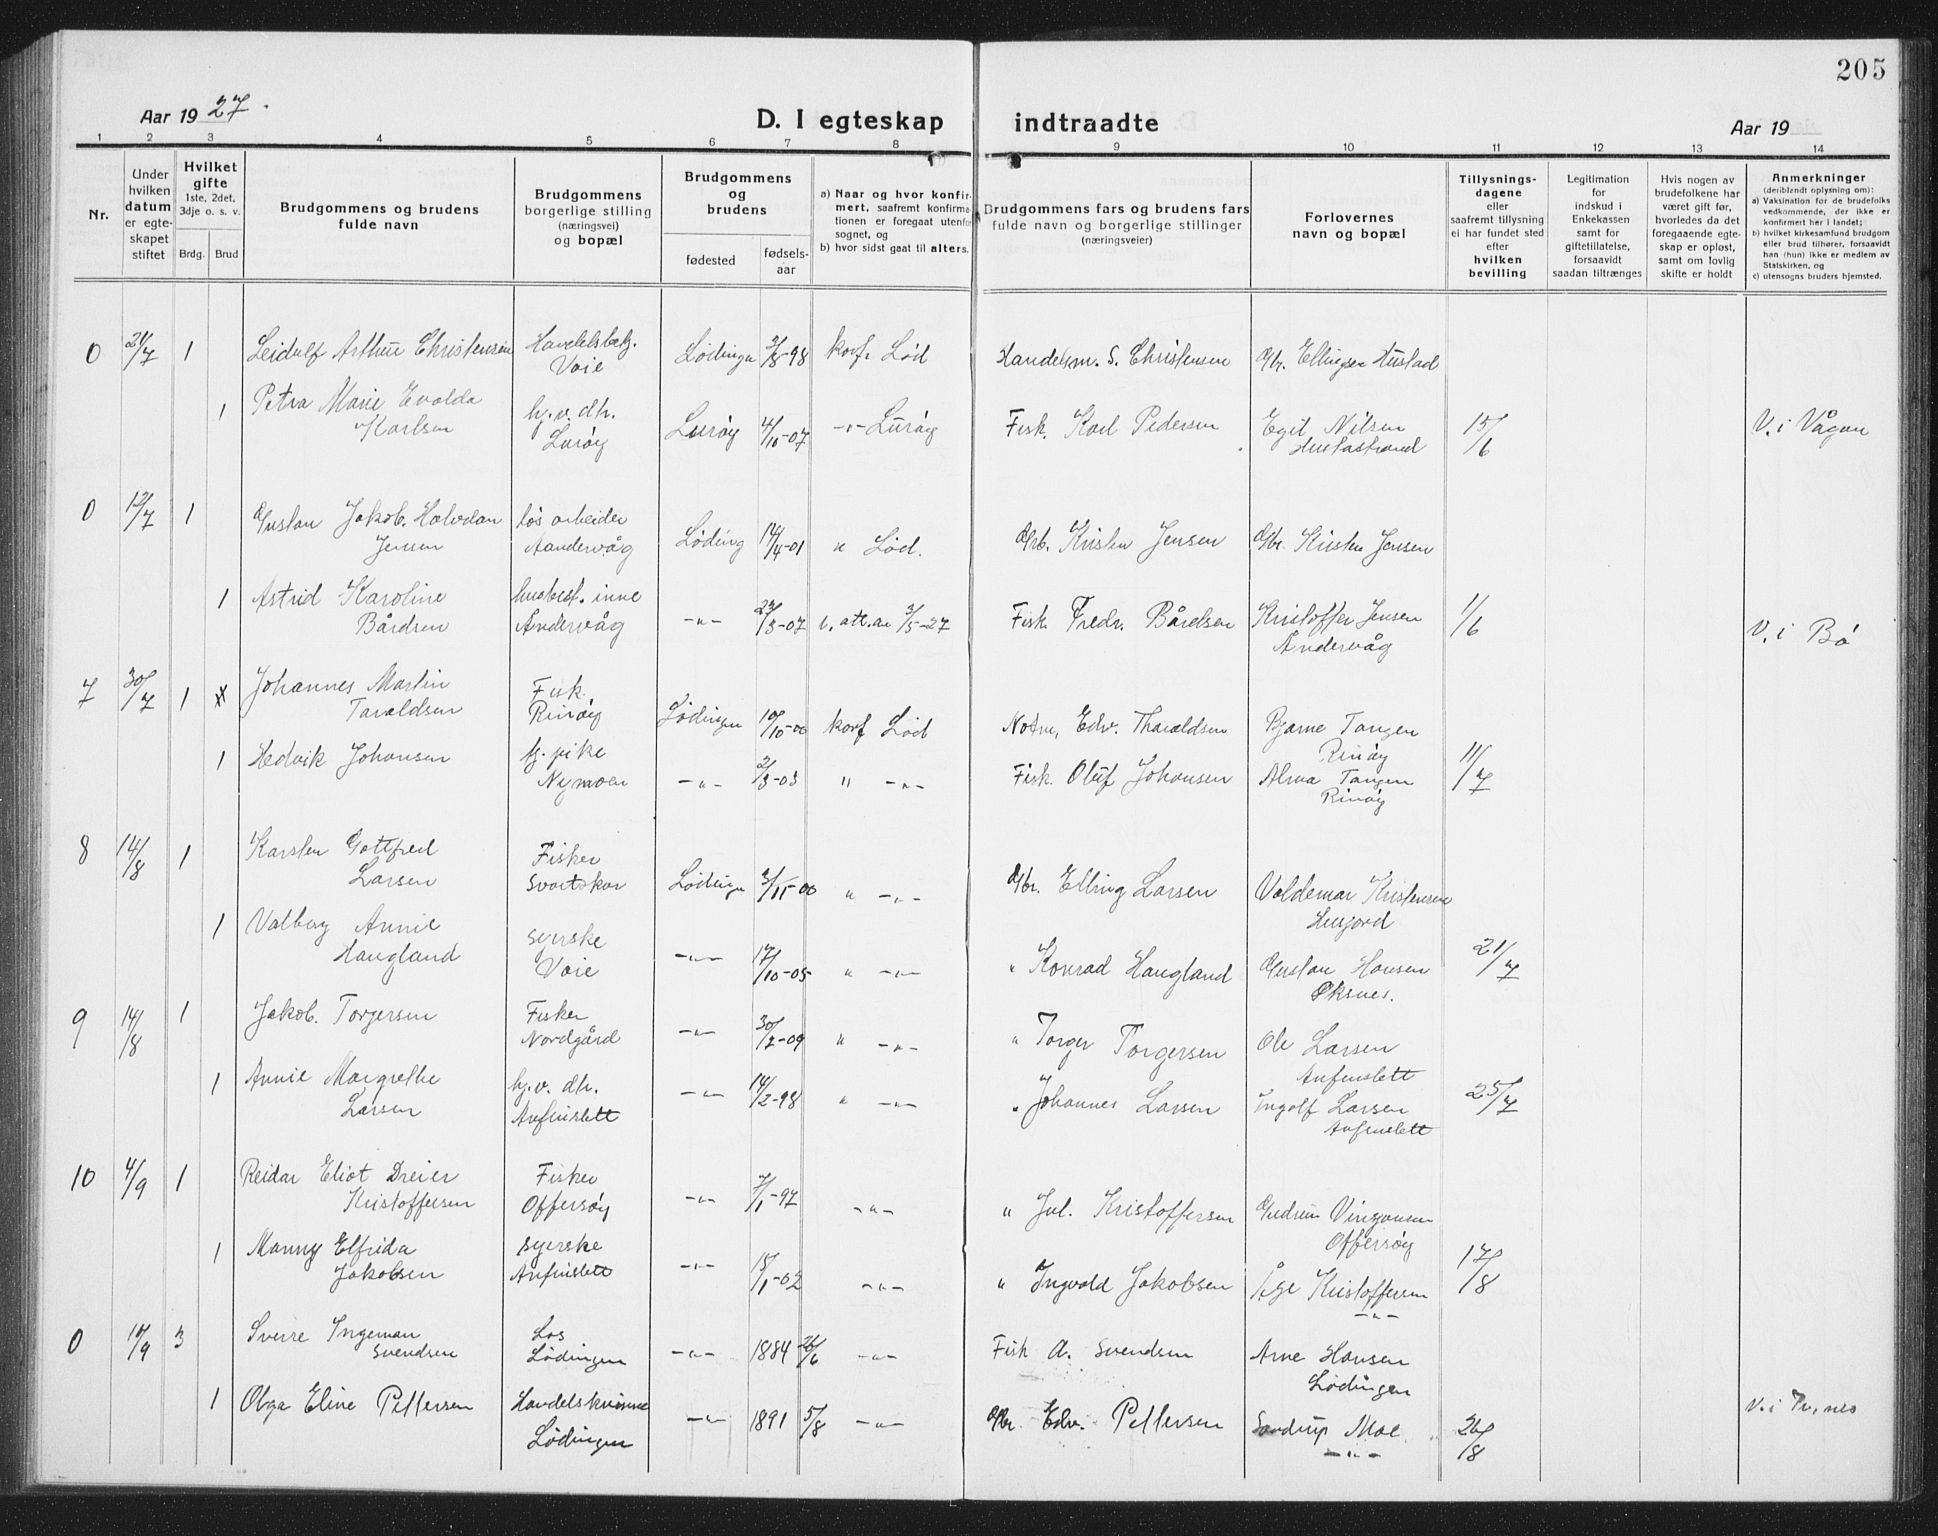 205
Aar 19 27.
D. I egteskap indtraadte
Aar 19
1 2 3 4 5 6 7 8 9 10 11 12 13 14
Nr.
Under
hvilken
datum
er egte-
skapet
stiftet
Hvilket
gifte
1ste, 2det,
3dje o. s. v.
Brdg. Brud
Brudgommens og brudens
fulde navn
Brudgommens
borgerlige stilling
(næringsvei)
og bopæl
Brudgommens
og
brudens
fødested
fødsels-
aar
a) Naar og hvor konfir-
mert, saafremt konfirma-
tionen er foregaat utenfor
sognet, og
b) hvor sidst gaat til alters.
Brudgommens fars og brudens fars
fulde navn og borgerlige stillinger
(næringsveier)
Forlovernes
navn og bopæl
Tillysnings-
dagene
eller
saafremt tillysning
ei har fundet sted
efter
hvilken
bevilling
Legitimation
for
indskud i
Enkekassen
samt for
giftetillatelse,
forsaavidt
saadan tiltrænges
Hvis nogen av
brudefolkene har
været gift før,
hvorledes da det
foregaaende egte-
skap er opløst,
samt om lovlig
skifte er holdt
Anmerkninger
(deriblandt oplysning om):
a) Vaksination for de brudefolks
vedkommende, der ikke er
konfirmert her i landet;
b) hvilket kirkesamfund brudgom
eller brud tilhører, forsaavidt
han (hun) ikke er medlem av
Statskirken, og
c) utensogns bruders hjemsted.
0 1 Leidulf Arthur Christensen Handelsbetj. Voie Lødingen 2/8-98 konf. Lød Handelsm. S. Christensen Gbr. Ellingsen Hustad
1 Petra Marie Evalda Karlsen hj.v. dtr. Lurøy Lurøy 4/10-07 -"- Lurøy Fisk. Karl Pedersen Egil Nilsen 15/6 V. i Vågan
0 12/7 1 Gustav Jakob. Halvdan Jensen løs arbeider Aandervåg Løding 14/4-01 " Lød. Grb. Kristen Jensen Gbr. Kristen Jensen
1 Astrid Karoline Bårdsen husbest. inne Åndervåg -"- 23/3-07 Fisk. Fredr. Bårdsen Kristoffer Jensen Åndervåg 1/6 V. i Bø
7 30/7 1 Johannes Martin Taraldsen Fisk. Rinøy Lødingen 10/10-00 konf Lød Edv. Tharaldsen Bjarne Tangen Rinøy
1 Hedvik Johansen hj. pike Nymoen -"- 2/3-03 " -"- Fisk. Oluf Johansen Alma Tangen Rinøy 11/7
8 14/8 1 Karsten Gottfred Larsen Fisker Svartskar Lødingen 3/11-00 " -"- Gbr. Elling Larsen Valdemar Kristensen Husjord
1 Valborg Annie Haugland syerske Voie -"- 17/10-05 " -"- " Konrad Haugland Gustav Hansen Øksnes. 21/7
9 14/8 1 Jakob. Torgersen Fisker Nordgård -"- " -"- " Torger Torgersen Ole Larsen Anfinslett
1 Annie Margrethe Larsen hj.v. dtr. Anfinslett -"- 14/2-98 " -"- " Johannes Larsen Ingolf Larsen Anfinslett 25/7
10 4/9 1 Reidar Eliot Dreier Kristoffersen Fisker Offersøy -"- 7/1-97 -"- " Jul. Kristoffersen Gudrun Offersøy
1 Manny Elfrida Jakobsen syerske Anfinslett -"- 15/1-02 -"- " Ingvald Jakobsen Åge Kristoffersen -"- 17/8
0 17/9 3 Sverre Ingeman Svendsen Los Lødingen -"- 1884 26/6 -"- Fisk A. Svendsen Arne Hansen Lødingen
1 Olga Eline Pettersen Handelskvinne Lødingen -"- 1891 5/8 -"- Gbr. Edv. Pettersen Moe -"- 26/8